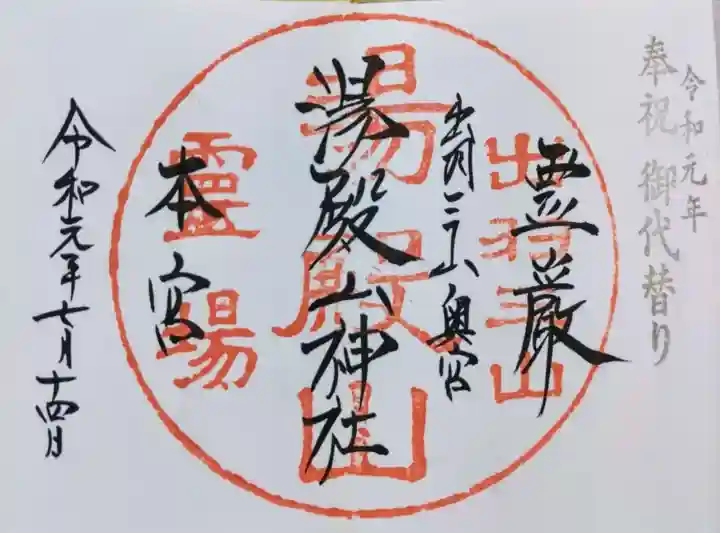 令和元年
奉祝 御代替り
霊巌
出羽三山 奥宮
湯殿山神社
本宮
令和元年七月十四日
出羽三山
湯殿山
靈場